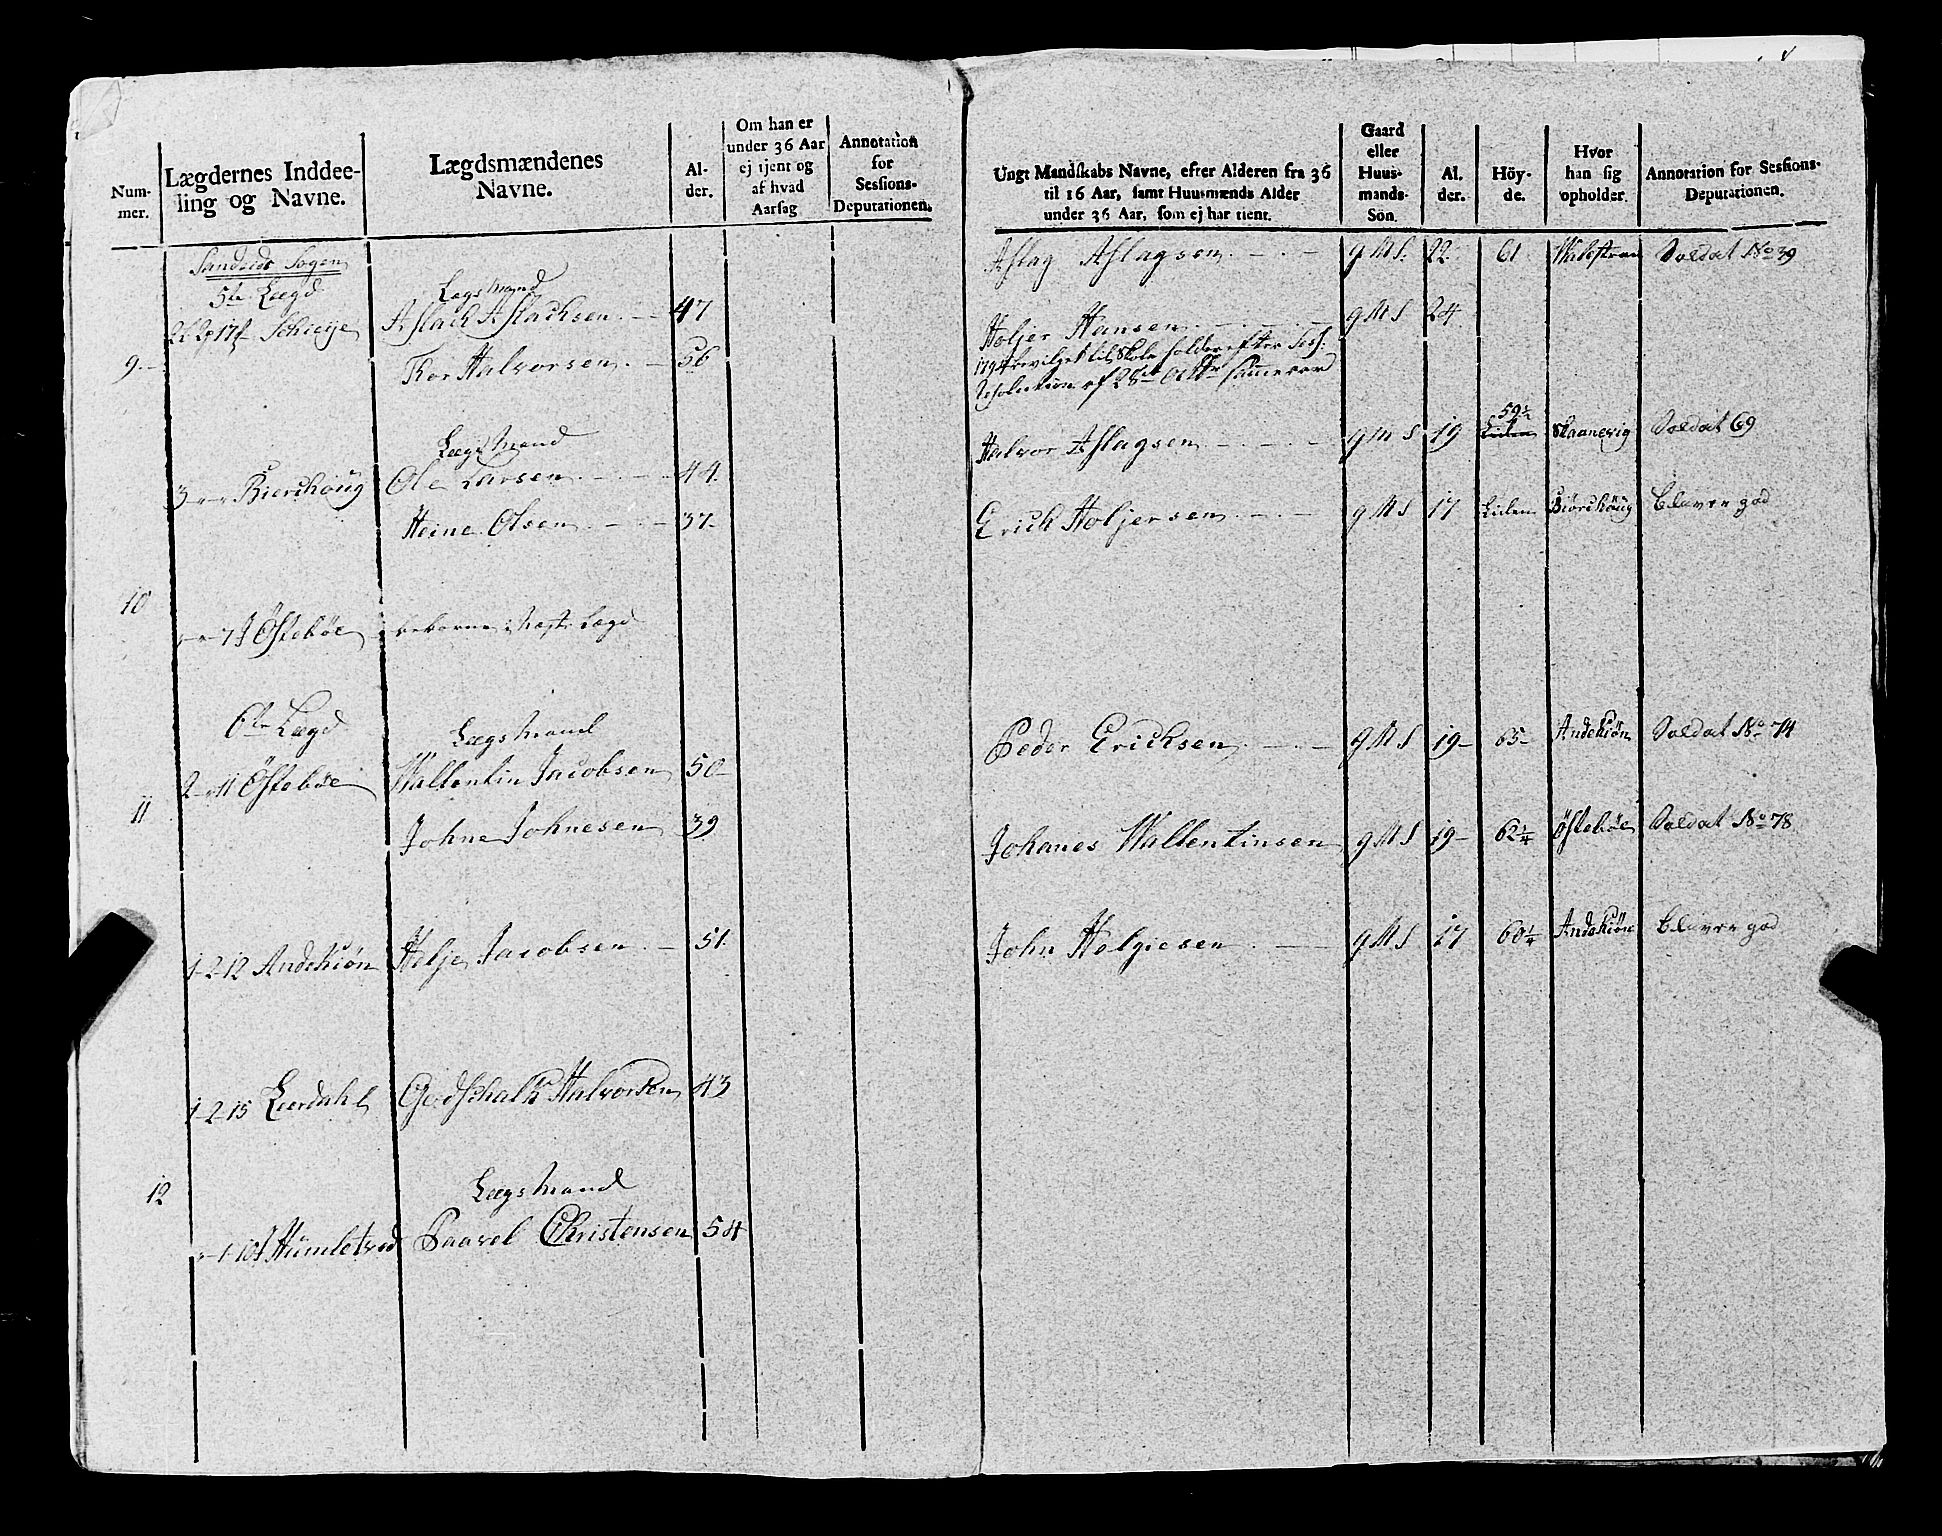 Num-
mer.
Lægdernes Inddee-
ling og Navne.
Lægdsmændenes
Navne.
Al-
der.
Om han er
under 36 Aar
ej tjent og
af hvad
Aarsag
Annotation
for
Sessions-
Deputationen.
Sandeids Sogen
5te Lægd
Lægsmand
Aslach Aslachsen 47
9.
Thor Halvorsen 56
Lægsmand
3 Bierchøug Ole Larsen 44.
Heine Olsen 37
10
7½ Østebøe
Lægd
6te Lægd
Lægsmand
2 11 Østebøe Wallentin Jacobsen 50
11
Johne Johnesen 39
1-2-12 Andekiøn Helje Jacobsen 51.
1-2-15 Leerdahl Godschalk Halvorsen 43
12
Lægsmand
Paavel Christensen 54
Ungt Mandskabs Navne, efter Alderen fra 36
til 16 Aar, samt Huusmænds Alder
under 36 Aar, som ej har tient.
Gaard
eller
Huus-
mands-
Søn.
Al.
der.
Höy-
de.
Hvor
han sig
opholder.
Annotation for Sessions-
Deputationen.
Aslag Aslagsen g M S. 22. 61 Soldat No 39
Holjer Hansen g M S 24
1794 bevilget til Skoleholder efter Sess:
Resolution af 28de samme
59½
Halvor Aslagsen g M S 19 Liden Skaanevig Soldat 69
Erich Holjersen g M S 17 Liden Biørchøug
Peder Ericksen g M S 19 65 Andekiøn Soldat No 74
Johanes Wallentinsen g M S 19 62¼ Østebøe Soldat No 78
John Helgiesen g M S 17 60¼ Andekiøn